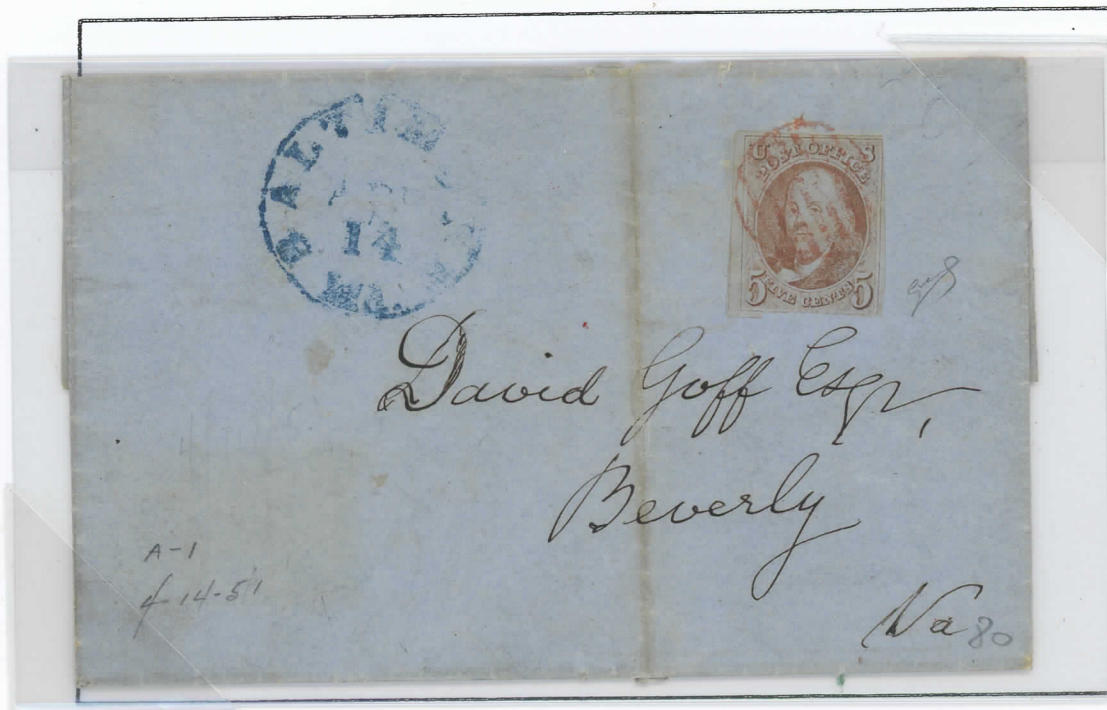 BALTIM
APR
14
Md.
U S
POST OFFICE
5 FIVE CENTS 5
David Goff Esqr,
Beverly
Va 80
A-1
4-14-51